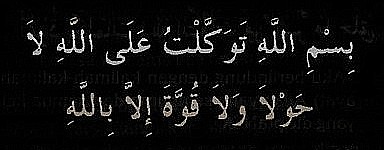 بِسْمِ اللَّهِ تَوَكَّلْتُ عَلَى اللَّهِ لاَ
حَوْلاَ وَلاَ قُوَّةَ إِلاَّ بِاللَّهِ